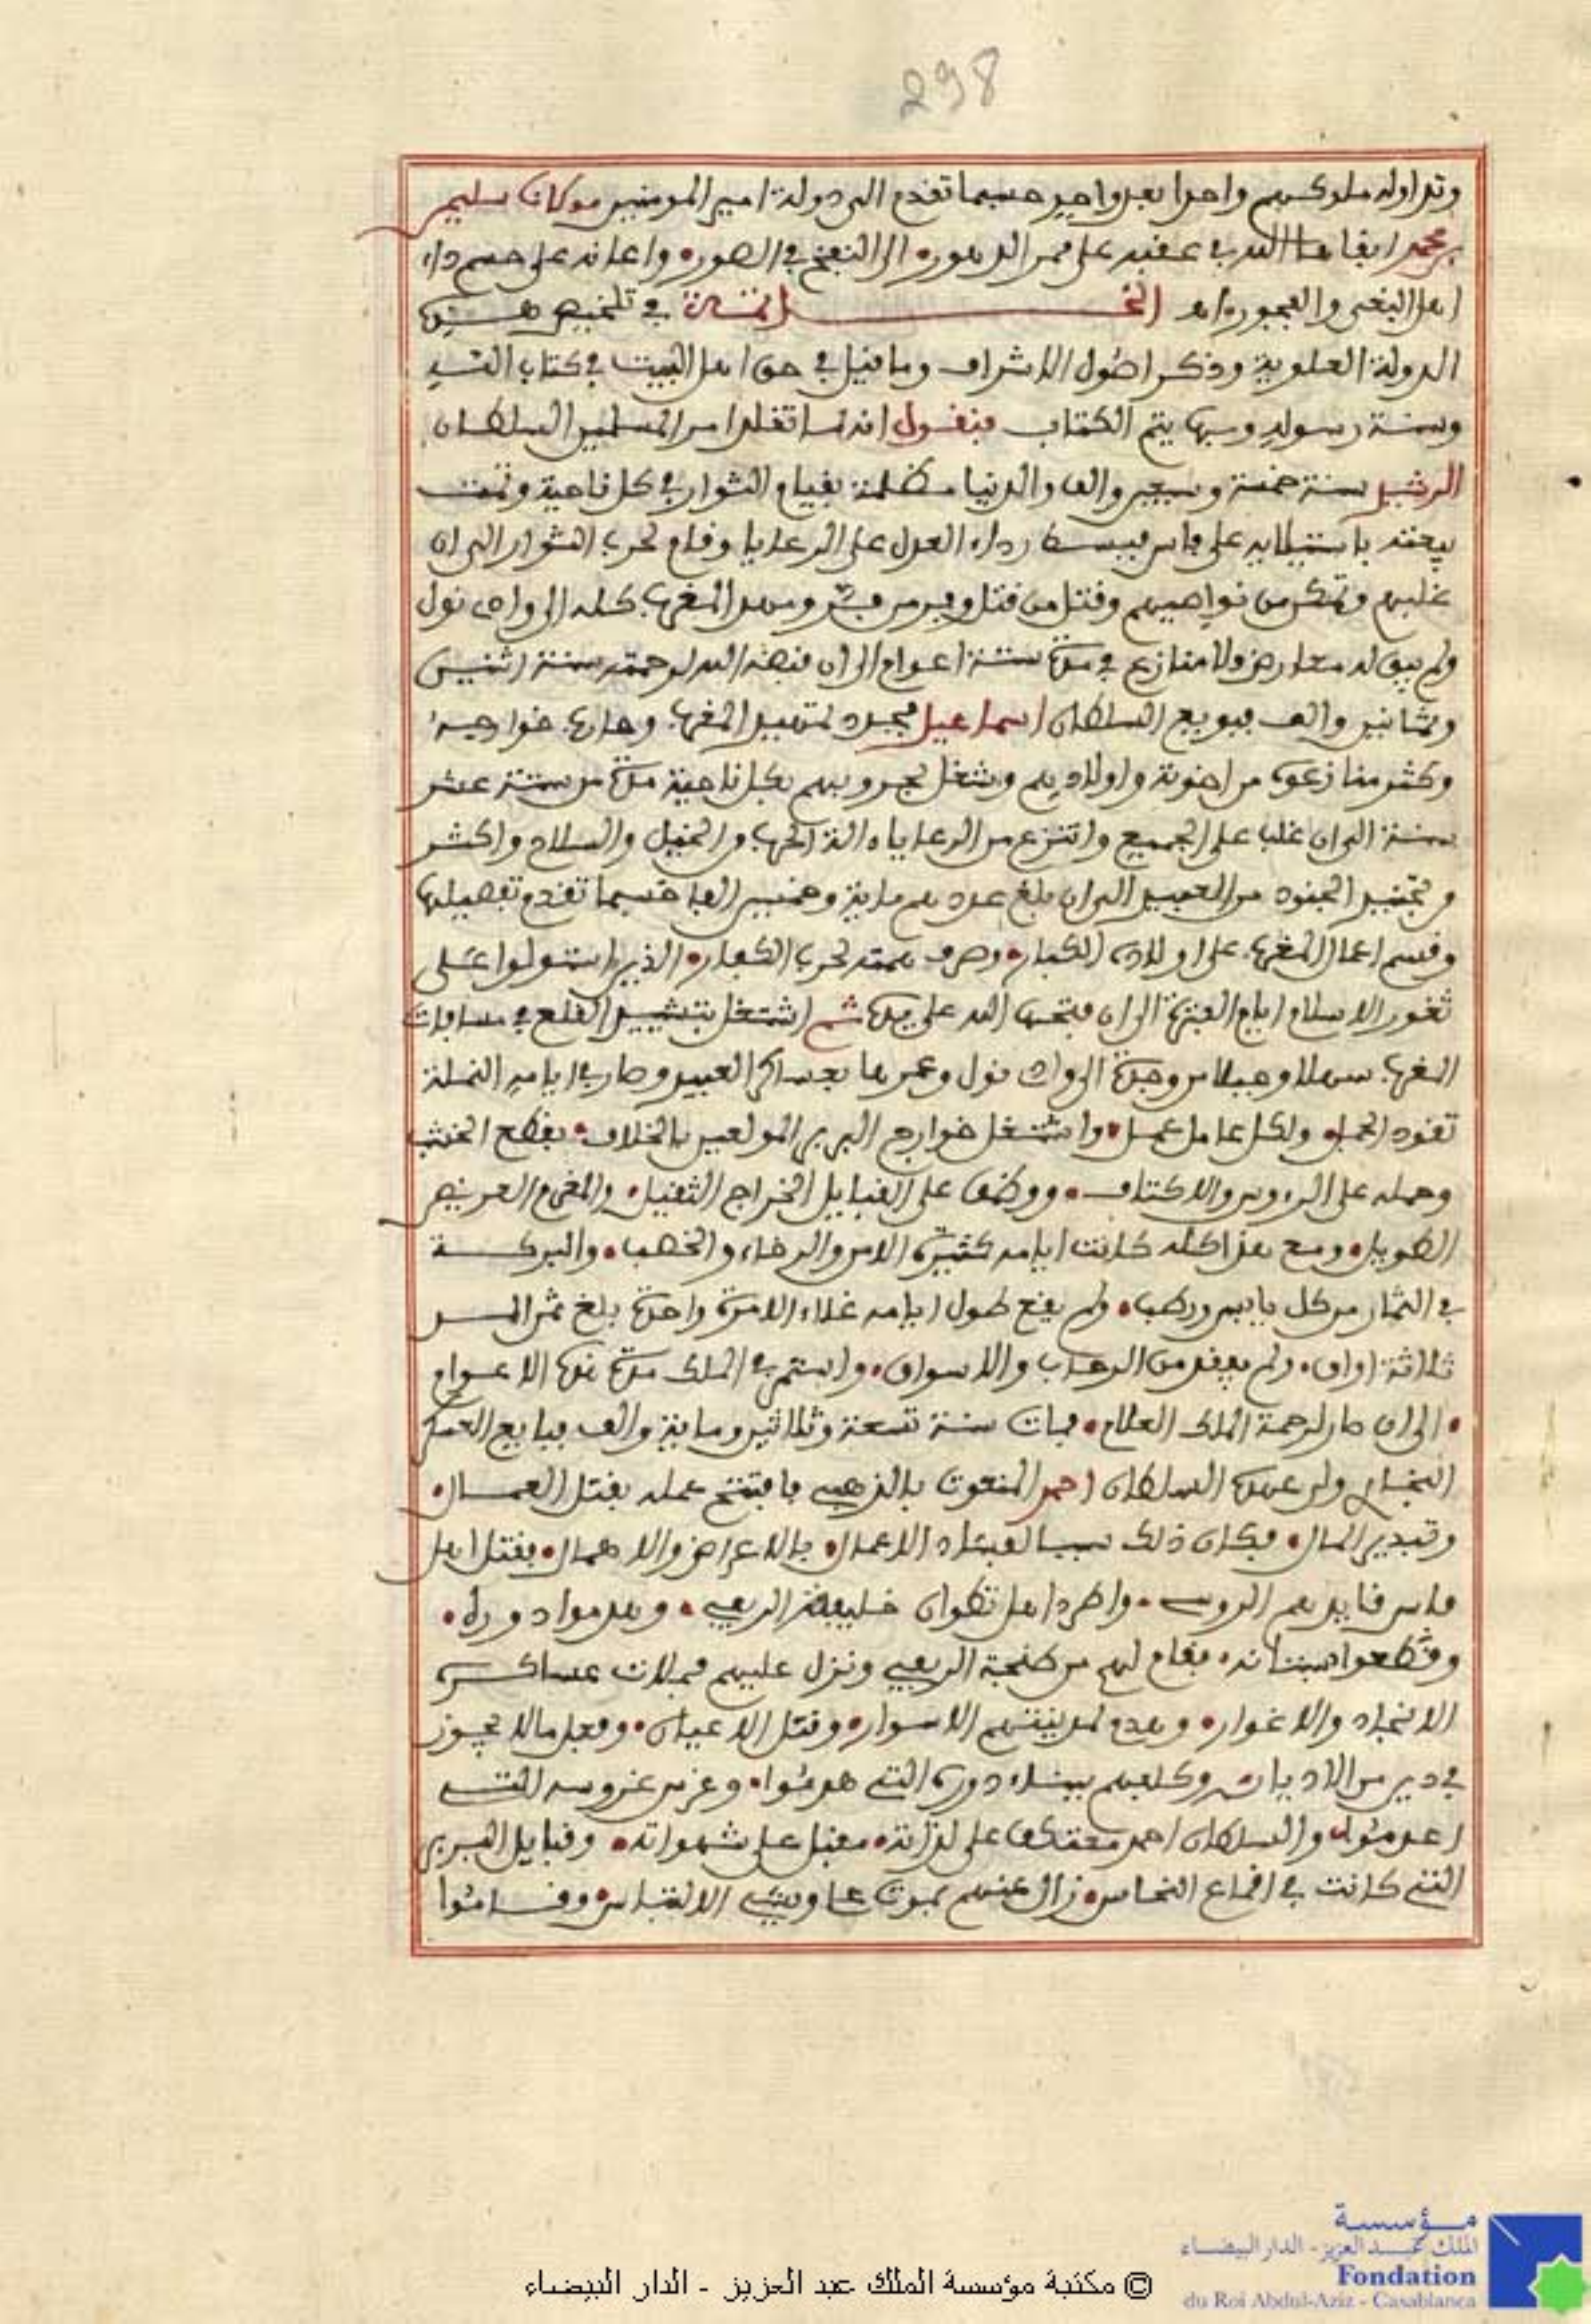 298
وتداوله ملوكهم واحدا بعد واحد حسبما تقدم الى دولة امير المومنين مولانا سليمن
بن محمد ابقاها الله في عقبه على ممر الدهور• الى النفخ في الصور• واعانه على حسم داء
اهل البغي والفجور• اه الخـــاتمـة في تلخيص هــذه
الدولة العلوية وذكر اصول الاشراف وما قيل في حق اهل البيت في كتاب الله
وسنة رسوله وبها يتم الكتاب فنقول انه لما تقلد امر المسلمين السلطان
الرشيد سنة خمسة وسبعين والف والدنيا مظلمة بقيام الثوار في كل ناحية وتمت
بيعته باستيلايه على فاس فبسط رداء العدل على الرعايا وقام لحرب الثوار الى ان
غلبهم وتمكن من نواصيهم وقتل من قتل وفر من فر ومهد المغرب كله الى وادي نول
ولم يبق له معارض ولا منازع في مدة ستة اعوام الى ان قبضه الله لرحمته سنة اثنين
وثمانين والف فبويع السلطان اسماعيل فجد لتمهيد المغرب وحارب خوارجه
وكثر منازعوه من اخوته واولادهم وشغل بحروبهم بكل ناحية مدة من ستة عشر
سنة الى ان غلب على الجميع وانتزع من الرعايا ءالة الحرب من الخيل والسلاح واكثر
من تجنيد الجنود من العبيد الى ان بلغ عددهم ماية وخمسين الفا حسبما تقدم تفصيلها
وقسم اعمال المغرب على اولاده الكبار• وصرف همته لحرب الكفار• الذين استولوا على
ثغور الاسلام ايام الفترة الى ان فتحها الله على يده ثم اشتغل بتشييد القلع في مسافات
المغرب سهلا وجبلا من وجدة الى وادي نول وعمرها بعساكر العبيد وصار في ايامه النملة
تقود الجمل• ولكل عامل عمل• واشتغل خوارج البربر المولعين بالخلاف• بقطع الخشب
وحمله على الروس والاكتاف• ووظف على القبايل الخراج الثقيل• والمغرم العريض
الطويل• ومع هذا كله كانت ايامه كثيرة الامن والرخاء والخصب• والبركــة
في الثمار من كل يابس ورطب• ولم يقع طول ايامه غلاء الا مرة واحدة بلغ ثمن المــد
ثلاثة اواق• ولم يفقد من الرحاب والاسواق• واستمر في الملك مدة هذه الاعوام
• الى ان صار لرحمة الملك العلام• فمات سنة تسعة وثلاثين وماية والف فبايع العسكر
البخاري ولي عهده السلطان احمد المنعوت بالذهبي فافتتح عمله بقتل العمــال•
وتبدير المال• فكان ذلك سببا لفساد الاعمال• بالاعراض والاهمال• فقتل اهل
فاس قايدهم الروسي• واطرد اهل تطوان خليفة الريفي• وهدموا دوره•
وقطعوا بستانه• فقام لهم من طنجة الريفي ونزل عليهم بمحلات عساكــره
الانجاد والاغوار• وهدم لمدينتهم الاسوار• وقتل الاعيان• وفعل ما لا يجوز
في دين من الاديان• وكلفهم ببناء دوره التي هدموا• وغرس غروسه التــي
اعدموا• والسلطان احمد معتكف على لذاته• مقبل على شهواته• وقبايل البربر
التي كانت في اقماع النحاس• زال عنهم بموت الالتباس• وقــاموا
© مكتبة مؤسسة الملك عبد العزيز - الدار البيضاء
مؤسسة
الملك عبد العزيز - الدار البيضاء
Fondation
du Roi Abdul-Aziz - Casablanca